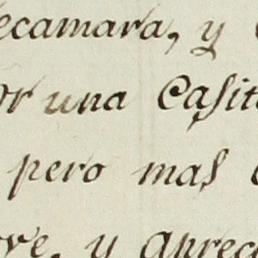 ecamara, y
or una Casit
pero mas
re, y aprec